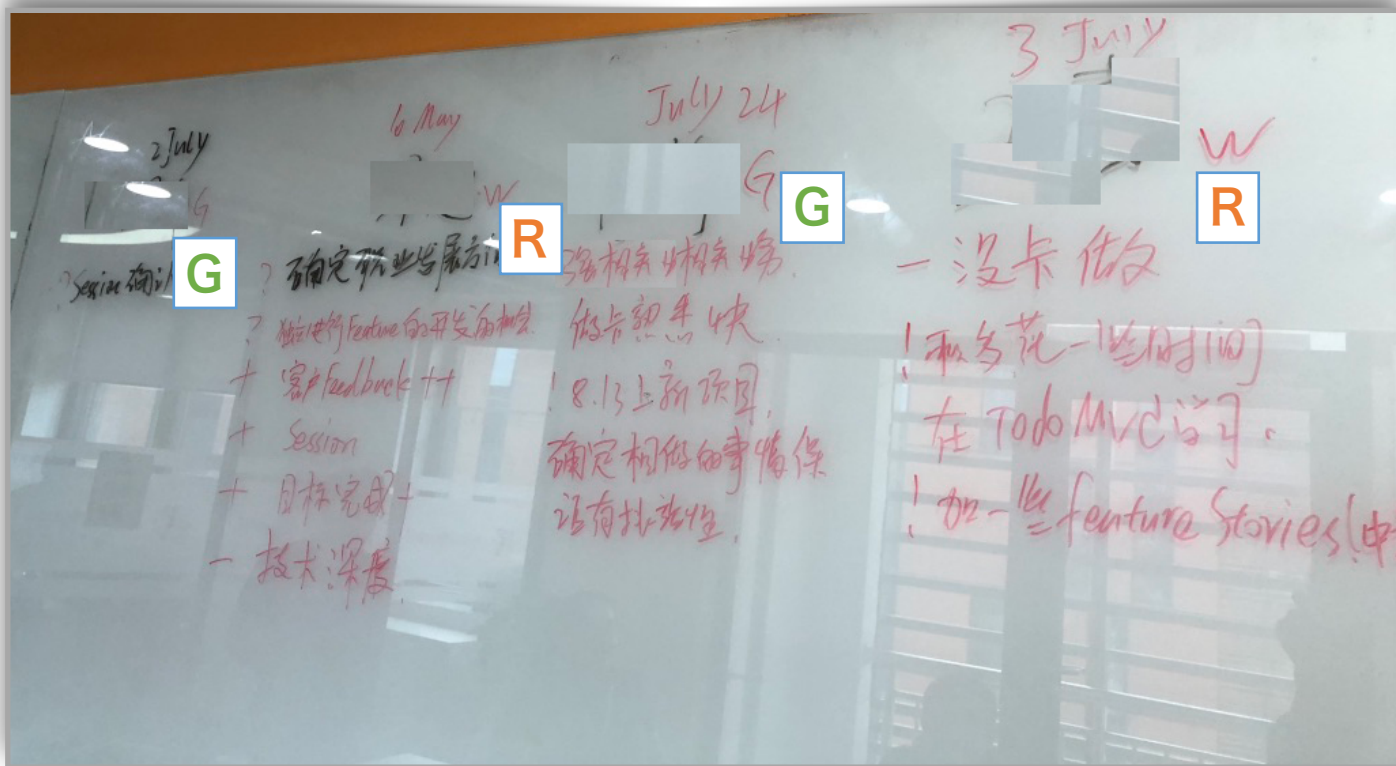 2 July
G
G
? Session 确认
6 May
W
R
? 确定职业发展方
? 独立进行Feature的开发的机会
+ 客户Feedback ++
+ Session
+ 目标完成 +
- 技术深度
July 24
G
G
做卡熟悉快
! 8.13上新项目,
确定想做的事情保
证有挑战性.
3 July
W
R
- 没卡做
! 多花一些时间
在 Todo MVC 学习.
! 加一些feature Stories(中